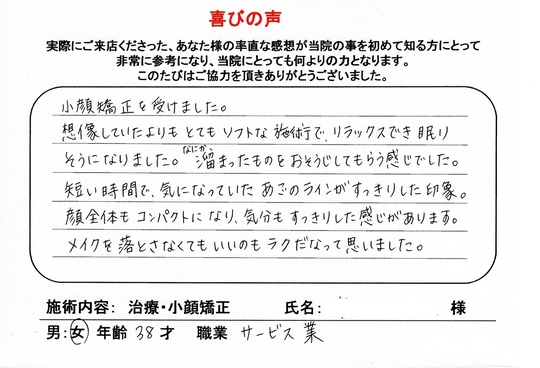 喜びの声
実際にご来店くださった、あなた様の率直な感想が当院の事を初めて知る方にとって
非常に参考になり、当院にとっても何よりの力となります。
このたびはご協力を頂きありがとうございました。
小顔矯正を受けました。
想像していたよりも とても ソフトな 施術で、リラックスでき 眠り
そうになりました。なにか 溜まったものを おそうじしてもらう感じでした。
短い時間で、気になっていた あごのラインがすっきりした印象。
顔全体も コンパクトに なり、気分も すっきりした感じがあります。
メイクを 落とさなくても いいのも ラクだなって思いました。
施術内容: 治療・小顔矯正 氏名: 様
男:女 年齢 38 才 職業 サービス 業